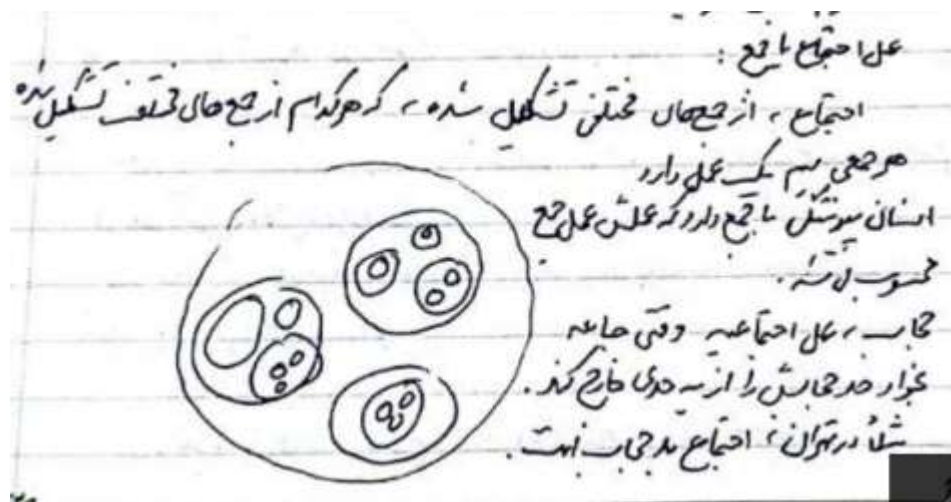 عمل اجتماع یا جمع :
اجتماع ، از جمع‌های مختلفی تشکیل شده ، که هرکدام از جمع‌های مختلف تشکیل شده
هر جمعی هم یک عمل دارد
انسان یک شکل با جمع دارد که عملش عمل جمع
محسوب
حجاب ، عمل اجتماعیه وقتی جامعه
حد حجابش را از یه حدی خارج کند .
مثلاً در تهران ، اجتماع بد حجاب است .